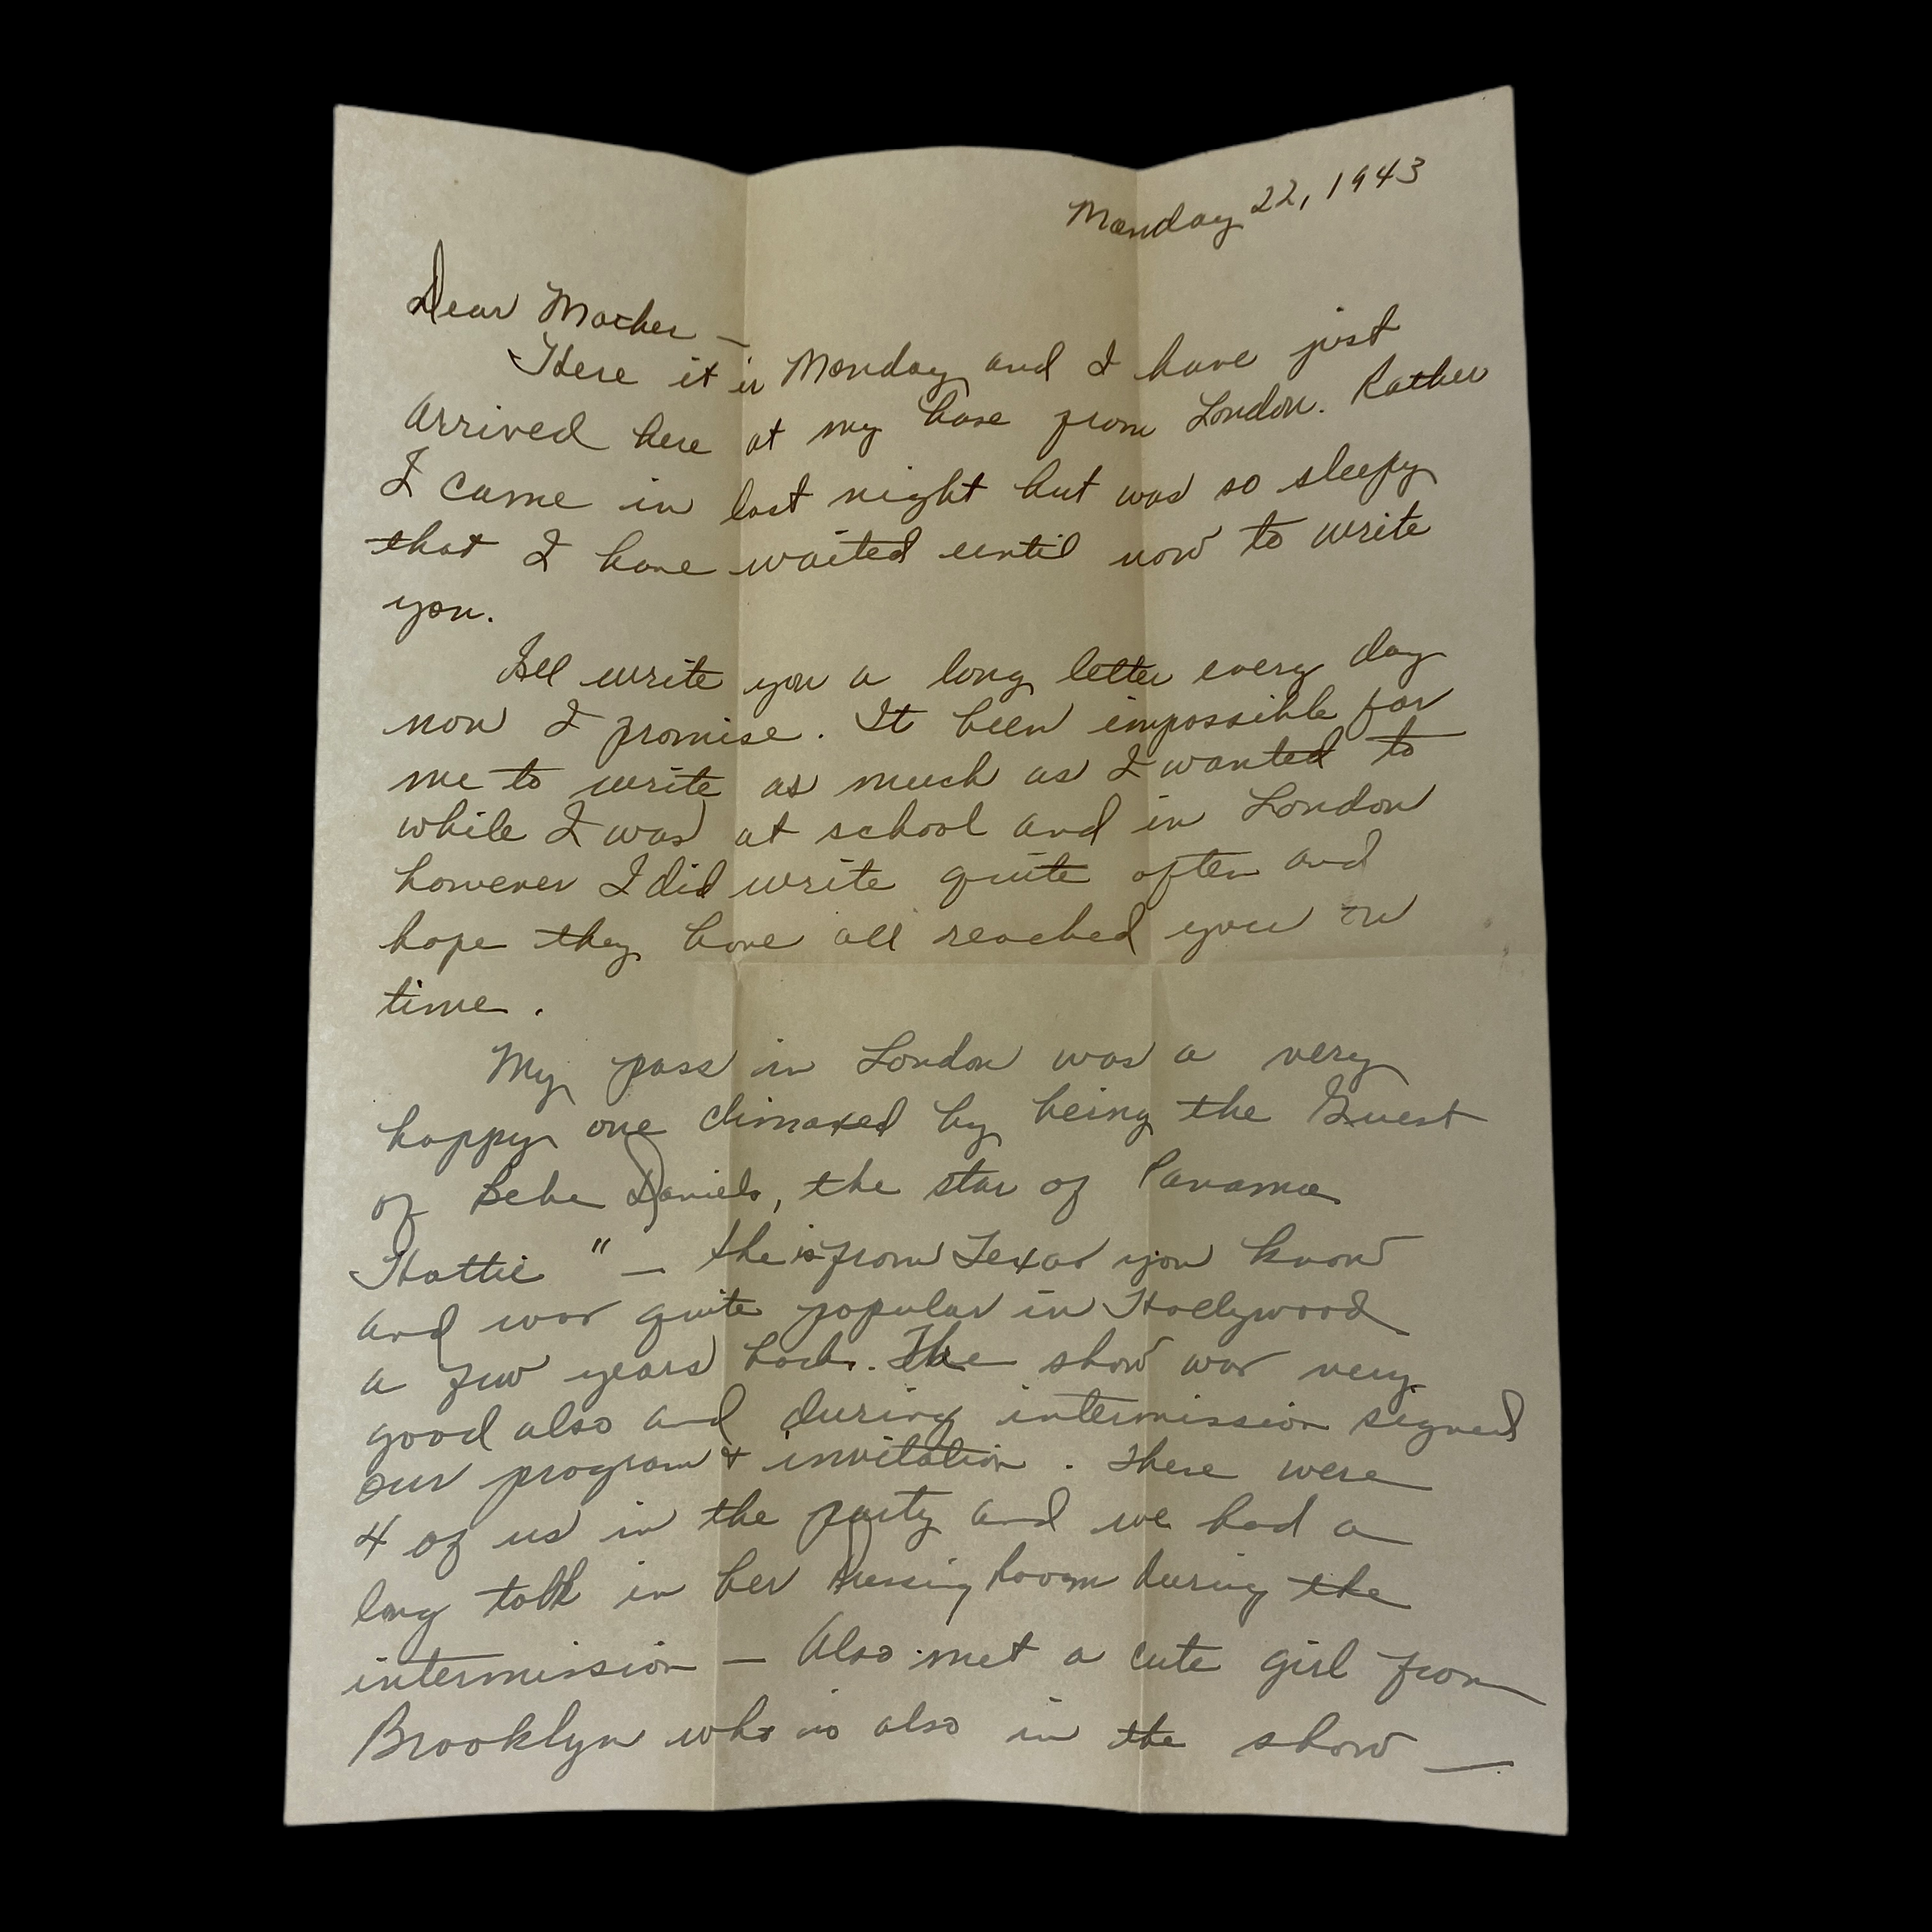 Monday 22, 1943
Dear Mother —
Here it is Monday and I have just
arrived here at my base from London. Rather
I came in last night but was so sleepy
that I have waited until now to write
you.
Ill write you a long letter every day
now I promise. It been impossible for
me to write as much as I wanted to
while I was at school and in London
however I did write quite often and
hope they have all reached you on
time.
My pass in London was a very
happy one climaxed by being the Guest
of Bebe Daniels, the star of Panama
Hattie " — She is from Texas you know
and was quite popular in Hollywood
a few years back. The show was very
good also and during intermission signed
our program & invitation. There were
4 of us in the party and we had a
long talk in her Dressing Room during the
intermission — Also met a cute girl from
Brooklyn who is also in the show —